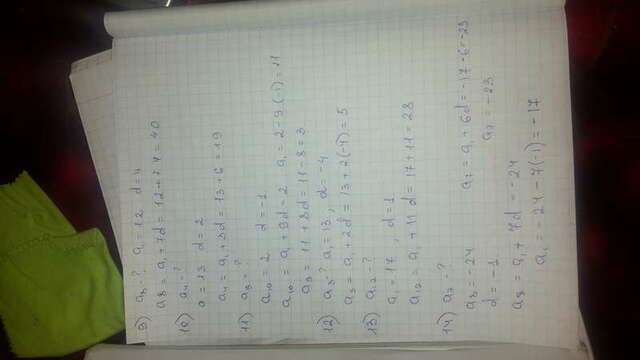 9) a₈-? a₁=12 d=4
a₈=a₁+7d=12+7·4=40
10) a₄-?
a=13 d=2
a₄=a₁+3d=13+6=19
11) a₉=?
a₁₀=2 d=-1
a₁₀=a₁+9d=2 a₁=2-9·(-1)=11
a₉=11+8d=11-8=3
12) a₃-? a₁=13, d=-4
a₃=a₁+2d=13+2(-4)=5
13) a₁₂-?
a₁=17, d=1
a₁₂=a₁+11d=17+11=28
14) a₇-?
a₈=24
d=-1
a₈=a₁+7d=-24
a₁=-24-7(-1)=-17
a₇=a₁+6d=-17-6=-23
a₇=-23